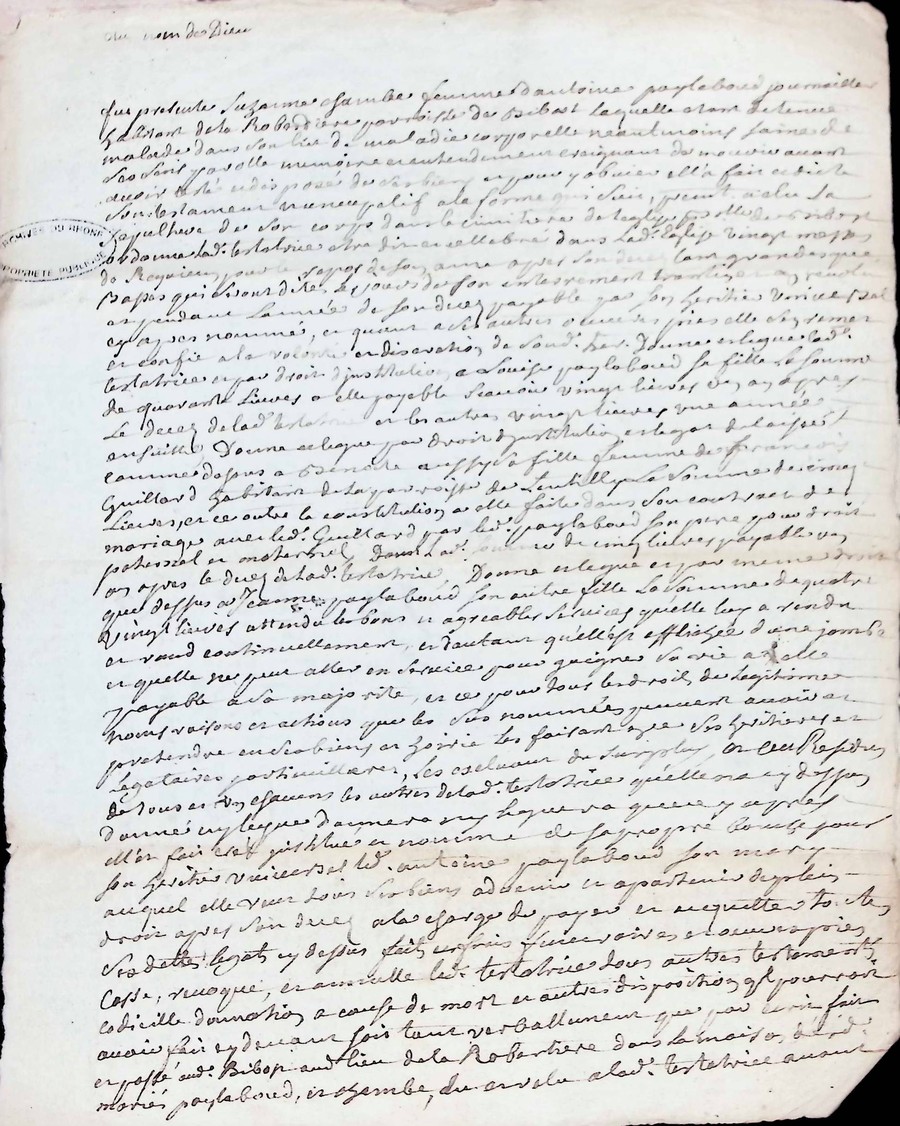 Au nom de Dieu
fut presente Suzanne chambe femme d'antoine paylaboud journaillier
habitant de la Robardiere parroisse de Bibost laquelle etant detenue
malade dans son lie d. maladie corporelle neaulmoins saine de
ses sens parolle memoire et entendement craignant de mourir avant
avoir testé et disposé de ses biens et pour y obvier ell'a fait et dicté
son testament nuncupatif a la forme qui suit, a elu La
sepulture de son corps dans le cimitiere de leglise de Bibost
ordonne lad.e testatrice etre dit et cellebré dans Lad.e Eglise vingt messes
de Requiem pour le repos de son ame apres son deces tant grandes que
basses qui seront dite Les jours de son enterrement
et pendant L'année de son deces payable par son heritier universel
cy apres nommé, et quant a ses autres oeuvres pies elle s'en remet
et confie a la volonté et discretion de sond. her. Donne et legue lad.e
testatrice et par droit d'institution a Louise paylaboud sa fille La somme
de quarante Livres a elle payable scavoir vingt livres un an apres
Le deces de lad.e testatrice et les autres vingt livres une année
ensuitte, Donne et legue par droit d'institution et legat delaissé
comme dessus a Benoite aussy sa fille femme de François
Guillard habitant de la parroisse de Lentilly La somme de cinq
Livres, et ce outre la constitution a elle faite dans son contract de
mariage avec led. Guillard par led. paylaboud son pere pour droit
paternel et maternel, Lad.e somme de cinq livres payable un
an apres le deces de lad.e testatrice, Donne et legue et par meme droit
que dessus a Jeanne paylaboud son autre fille La somme de quatre
vingt livres attendu les bons et agreables services quelle luy a rendu
et rend continuellement, et d'autant qu'elle est affligée d'une jambe
et quelle ne peut aller en service pour gaigner sa vie a elle
payable a sa majorité, et ce pour tous les droits de Legitime
noms raisons et actions que les sus nommées peuvent avoir et
pretendre en ses biens et hoirie les faisant ses heritieres et
Legataires particullieres, Les excluant du surplus, et au Residu
de tous et un chacuns les autres de lad.e testatrice qu'elle na cy dessus
donné ny legué donnera ny leguera que cy apres
elle en fait et institué et nommé de sa propre bouche pour
son heritier universel led. antoine paylaboud son mary
auquel elle veut tous ses biens advenir et apartenir de plein
droit apres son deces a la charge de payer et acquitter toutes
ses dettes legats cy dessus fait et frais funeraires et oeuvres pies
Casse, revoque, et annulle lad.e testatrice tous autres testaments
codicille donnation a cause de mort et autres disposition qu'l pourroit
avoir fait cy devant soit tant verballement que par ecrit fait
et passé aud. Bibost aud. lieu de la Robartiere dans la maison desd.
mariés paylaboud, et chambe, du et relu a lad.e testatrice avant
ARCHIVES DU RHONE
PROPRIETE PUBLIQUE